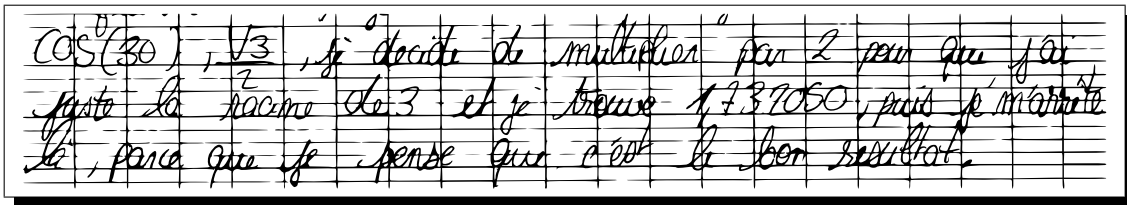 COS(30°), √3/2, je decide de multiplier par 2 pour que j'ai
juste la racine de 3 et je trouve 1,732050, puis je m'arrête
là, parce que je pense que c'est le bon resultat.